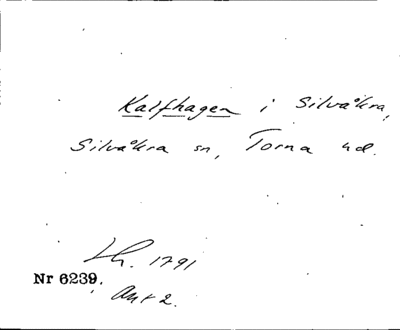 Kalfhagen i Silvåkra,
Silvåkra sn, Torna hd.
Lh. 1791
Nr 6239.
Akt 2.